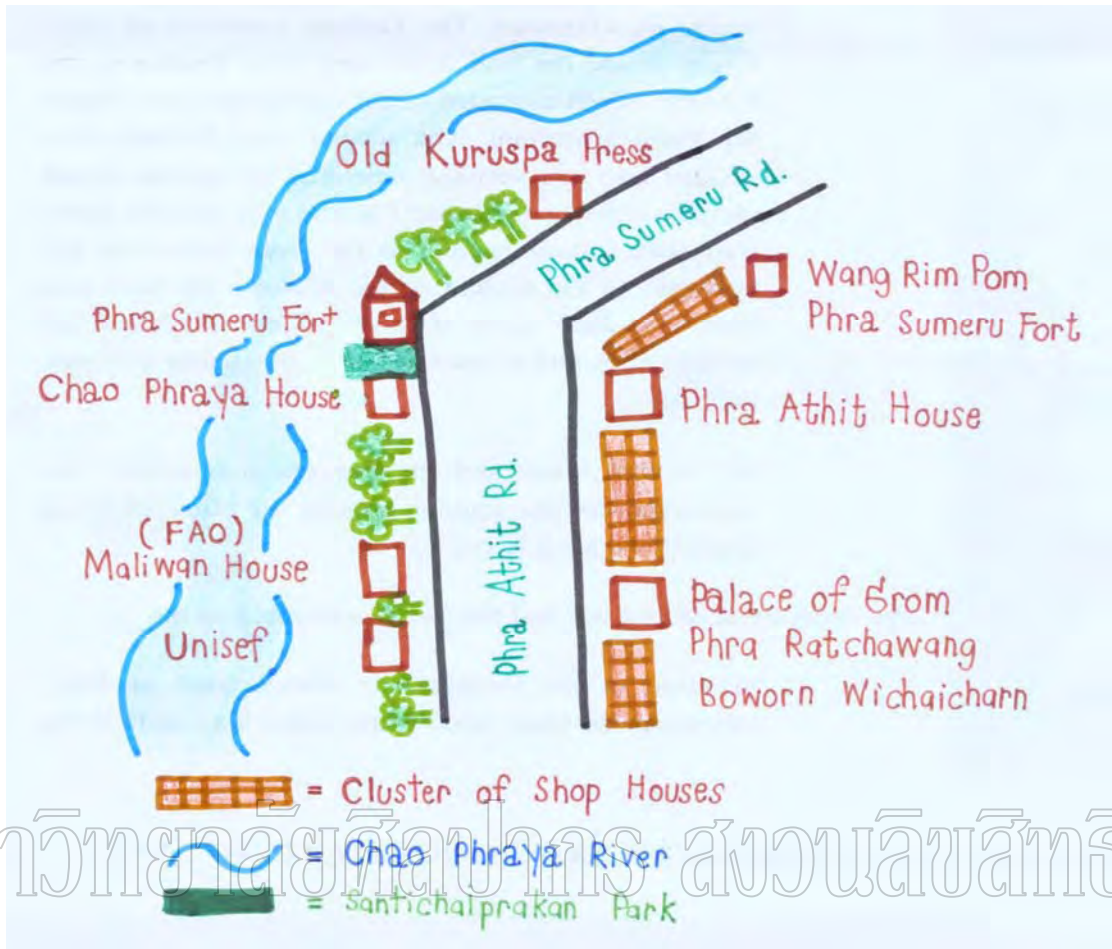 Old Kuruspa Press
Phra Sumeru Rd.
Wang Rim Pom
Phra Sumeru Fort
Phra Sumeru Fort
Chao Phraya House
Phra Athit House
Phra Athit Rd.
(FAO)
Maliwan House
Unisef
Palace of Grom
Phra Ratchawang
Boworn Wichaicharn
= Cluster of Shop Houses
= Chao Phraya River
= Santichaiprakan Park